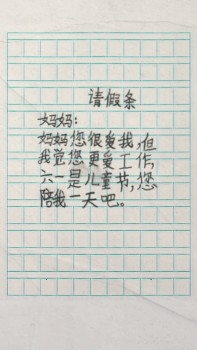 请假条
妈妈：
妈妈您很爱我，但
我觉您更爱工作，
六一是儿童节，您
陪我一天吧。